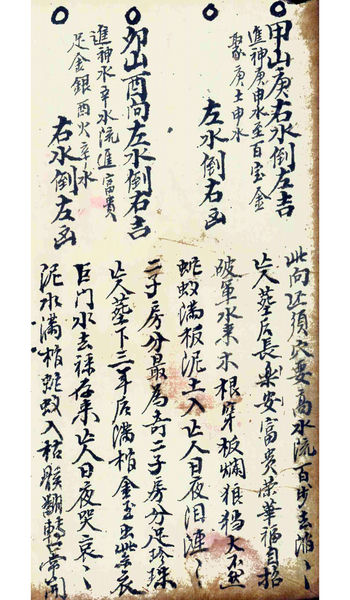 甲山庚右水倒左吉
進神庚申水至百宝金
聚庚土申水
左水倒右凶
卯山酉向左水倒右吉
進神水辛水流進富貴
足金銀酉火辛水
右水倒左凶
此向还須穴要高水流百步去消〻
亡人墓后長樂安富貴榮華福自招
破軍水來木根穿板爛狼
蚍蚁滿板泥土入亡人日夜泪漣〻
二子房分最為奇二子房分足珍珠
亡人墓下三年后滿棺金玉出紫衣
巨門水去祿存來亡人日夜哭哀〻
泥水滿棺蚍蚁入枯骸翻轉常開